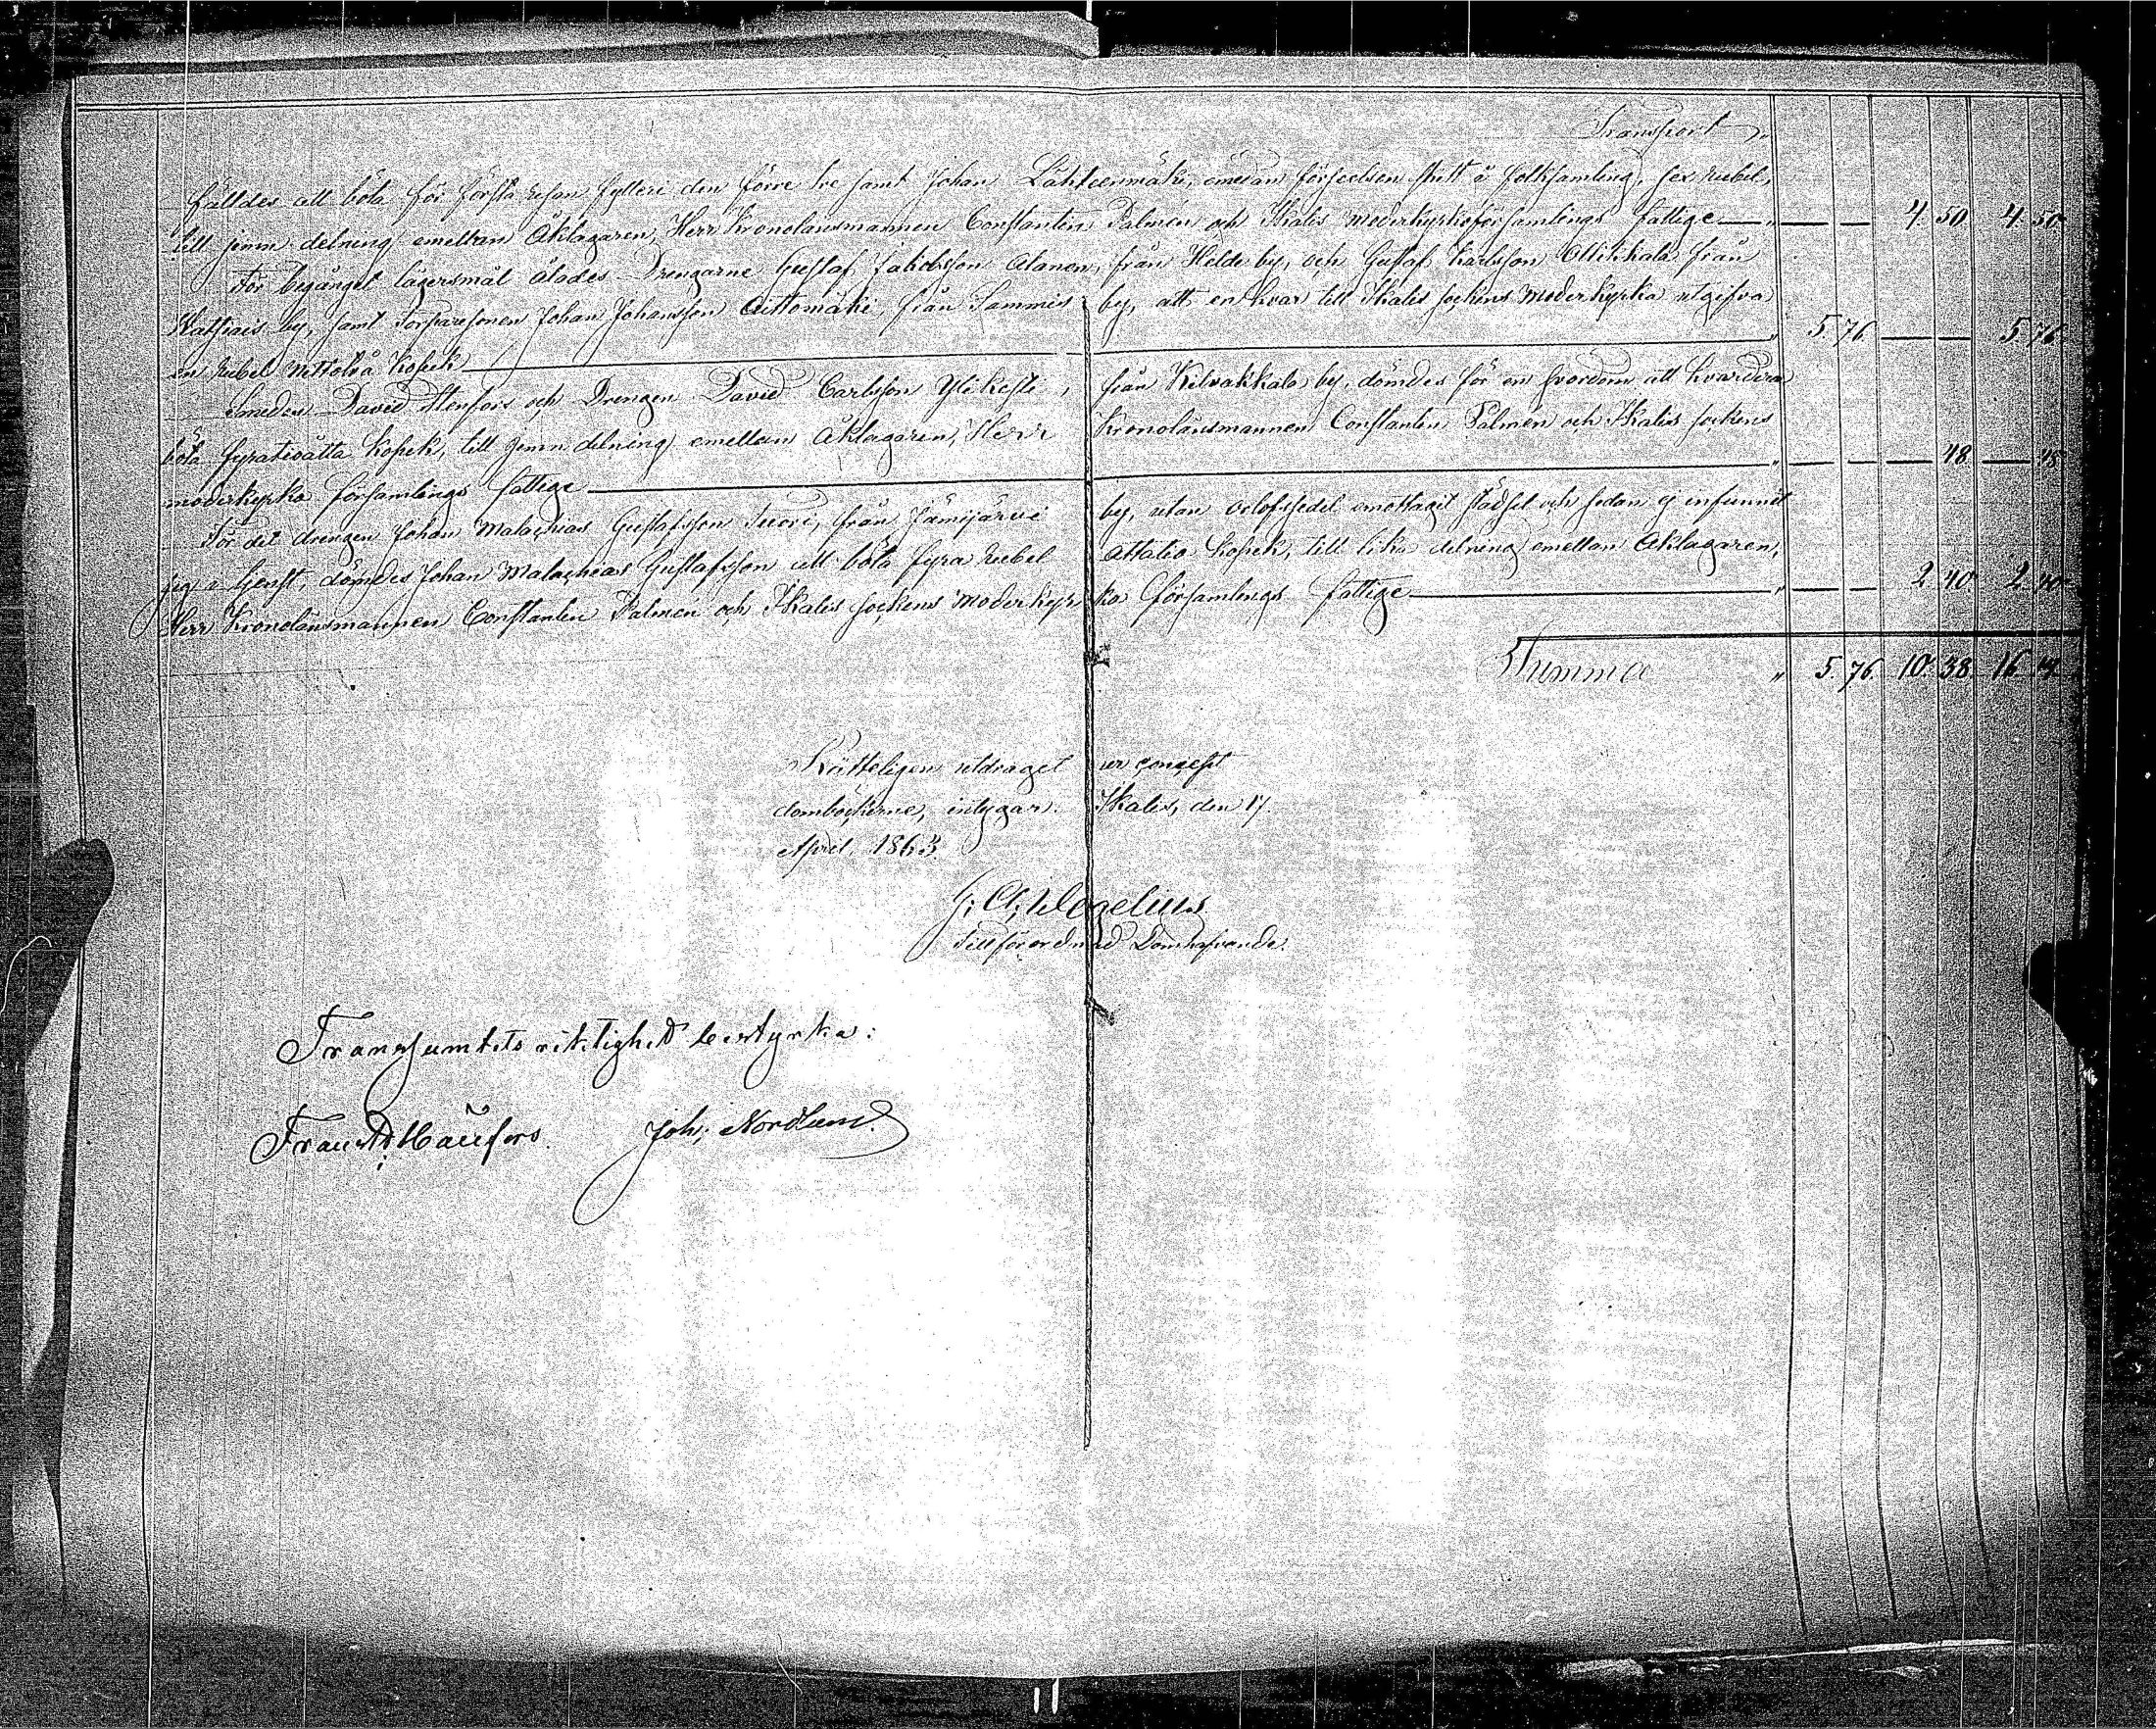 Transport „
fälldes att böta för första resan fylleri den förre tre samt Johan Lähteenmäki, emedan förseelsen skett å folksamling, sex rubel,
till jemn delning emellan Åklagaren, Herr Kronolänsmannen Constantin Palmén och Ikalis moderkyrkoförsamlings fattige — „ — — 4. 50. 4. 50.
För begånget lägersmål ålades Drengarne Gustaf Jakobsson Alanen, från Heldo by, och Gustaf Karlsson Ollikkala från
by, samt Torparesonen Johan Johansson Aittomäki, från Sammis by, att en hvar till Ikalis sockens Moderkyrka utgifva
en rubel nittotvå kopek — „ 5. 76. — — 5. 76.
Smeden David Stenfors och Drengen David Carlsson Ylikesti, från Kilvakkala by, dömdes för en svordom att hvardera
böta fyratioåtta kopek, till jemn delning emellan Åklagaren, Herr Kronolänsmannen Constantin Palmén och Ikalis sockens
moderkyrko församlings fattige — „ — — — 48. — 48.
För det drengen Johan Malachias Gustafsson Tuori, från Jämijärvi by, utan orlofssedel emottagit städsel och sedan ej infunnit
sig i tjenst, dömdes Johan Malachias Gustafsson att böta fyra rubel åttatio kopek, till lika delning emellan Åklagaren,
Herr Kronolänsmannen Constantin Palmén och Ikalis sockens Moderkyrko församlings fattige — „ — — 2. 40. 2. 40.
Summa „ 5. 76. 10. 38. 16.
Rätteligen utdraget ur concept
domböckerne, intygar. Ikalis, den 17
April 1863.
Tillförordnad Domhafvande.
Transsumtets riktighet bestyrka:
Joh; Nordlund.